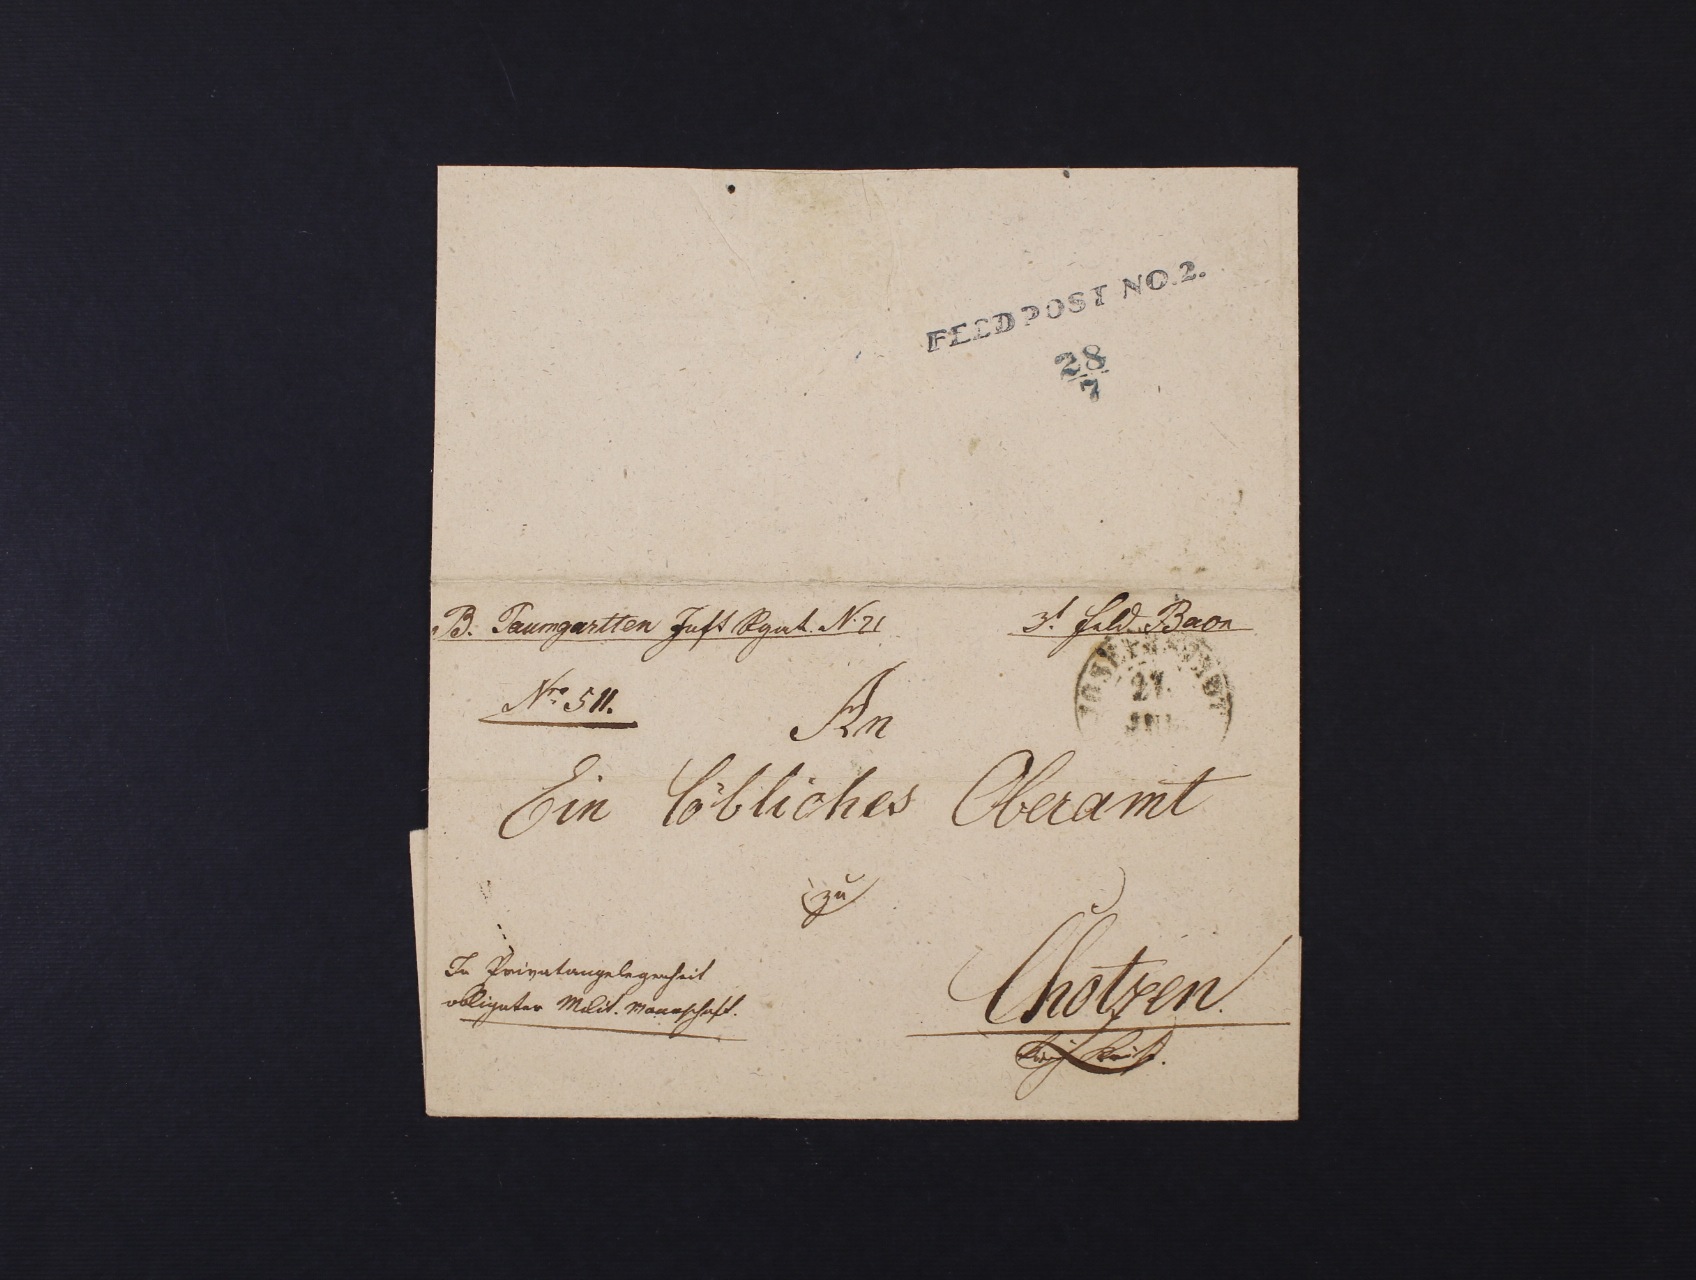 FELDPOST NO. 2.
28/7
B. Paumgartten Inft Rgmt. N. 21 3t. Feld Baon
JOSEPHSTADT
27.
JUL.
Nro. 511.
An
Ein löbliches Oberamt
zu
Chotzen.
In Privatangelegenheit
obligater Milit. Mannschaft.